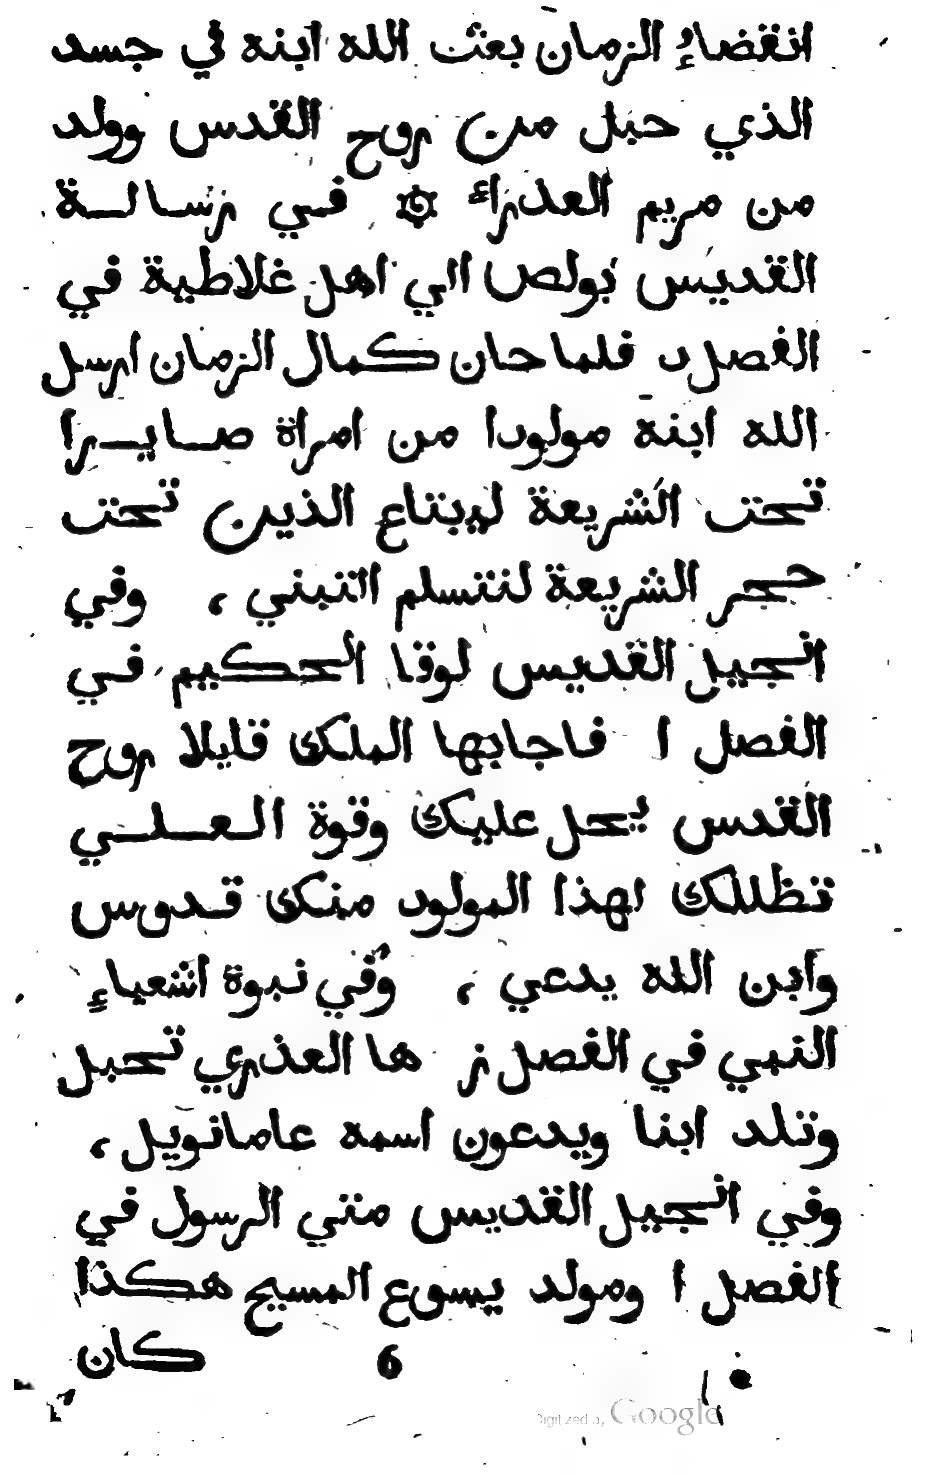 انقضاءِ الزمان بعث الله ابنه في جسد
الذي حبل من روح القدس وولد
من مريم العذراء ۞ في رسالة
القديس بولص الي اهل غلاطية في
الفصل د فلما حان كمال الزمان ارسل
الله ابنه مولودا من امراة صايرا
تحت الشريعة ليبتاع الذين تحت
حجر الشريعة لنتسلم التبني ، وفي
انجيل القديس لوقا الحكيم في
الفصل ا فاجابها الملك قايلا روح
القدس يحل عليك وقوة العلي
تظللك لهذا المولود منك قدوس
وابن الله يدعي ، وفي نبوة اشعياءِ
النبي في الفصل ز ها العذري تحبل
وتلد ابنا ويدعون اسمه عامانويل ،
وفي انجيل القديس متي الرسول في
الفصل ا ومولد يسوع المسيح هكذا
6 كان
Digitized by Google